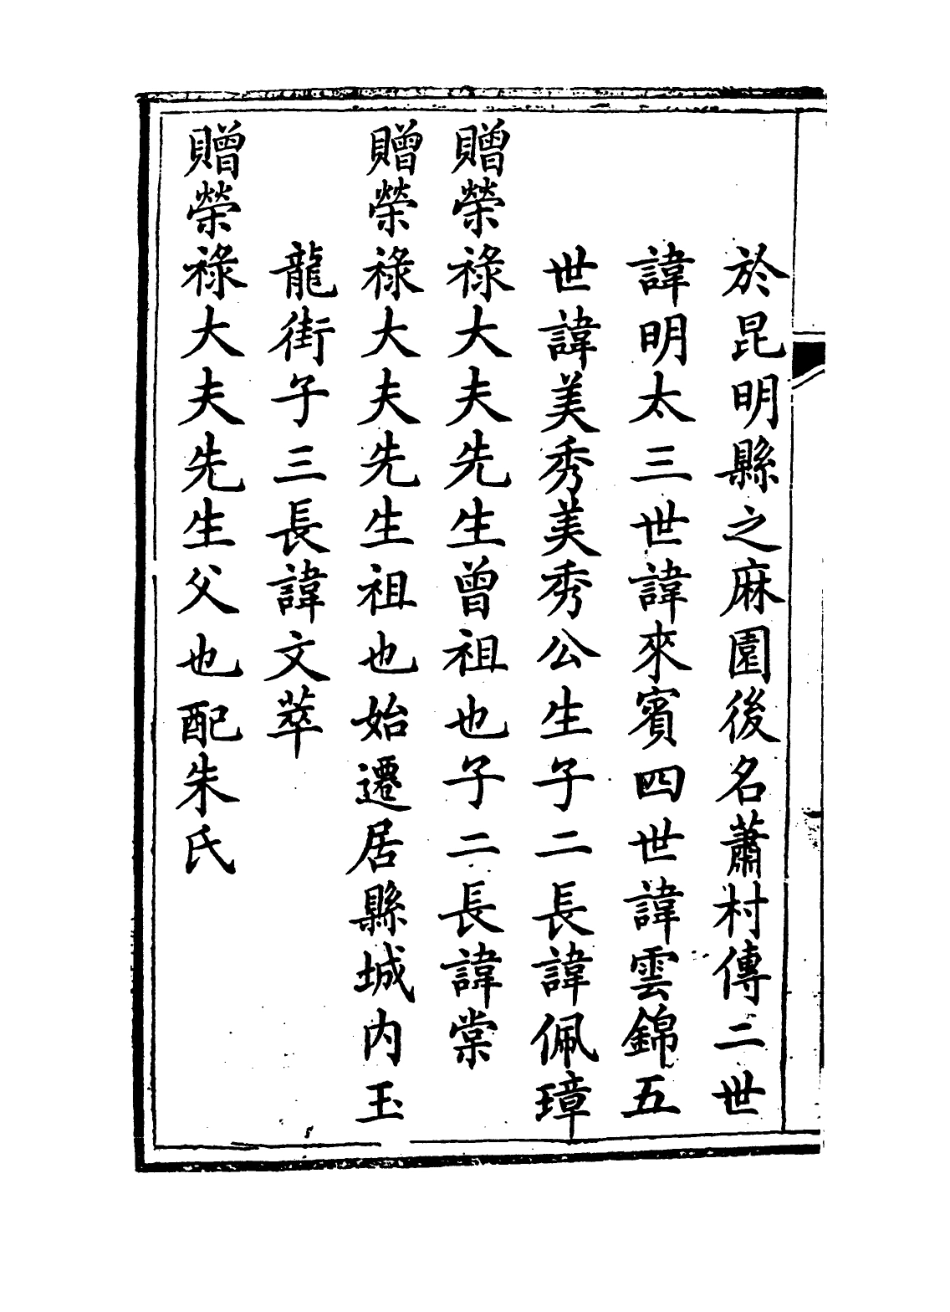 於昆明縣之麻園後名蕭村傳二世
諱明太三世諱來賓四世諱雲錦五
世諱美秀美秀公生子二長諱佩璋
贈榮祿大夫先生曾祖也子二長諱棠
贈榮祿大夫先生祖也始遷居縣城内玉
龍街子三長諱文萃
贈榮祿大夫先生父也配朱氏